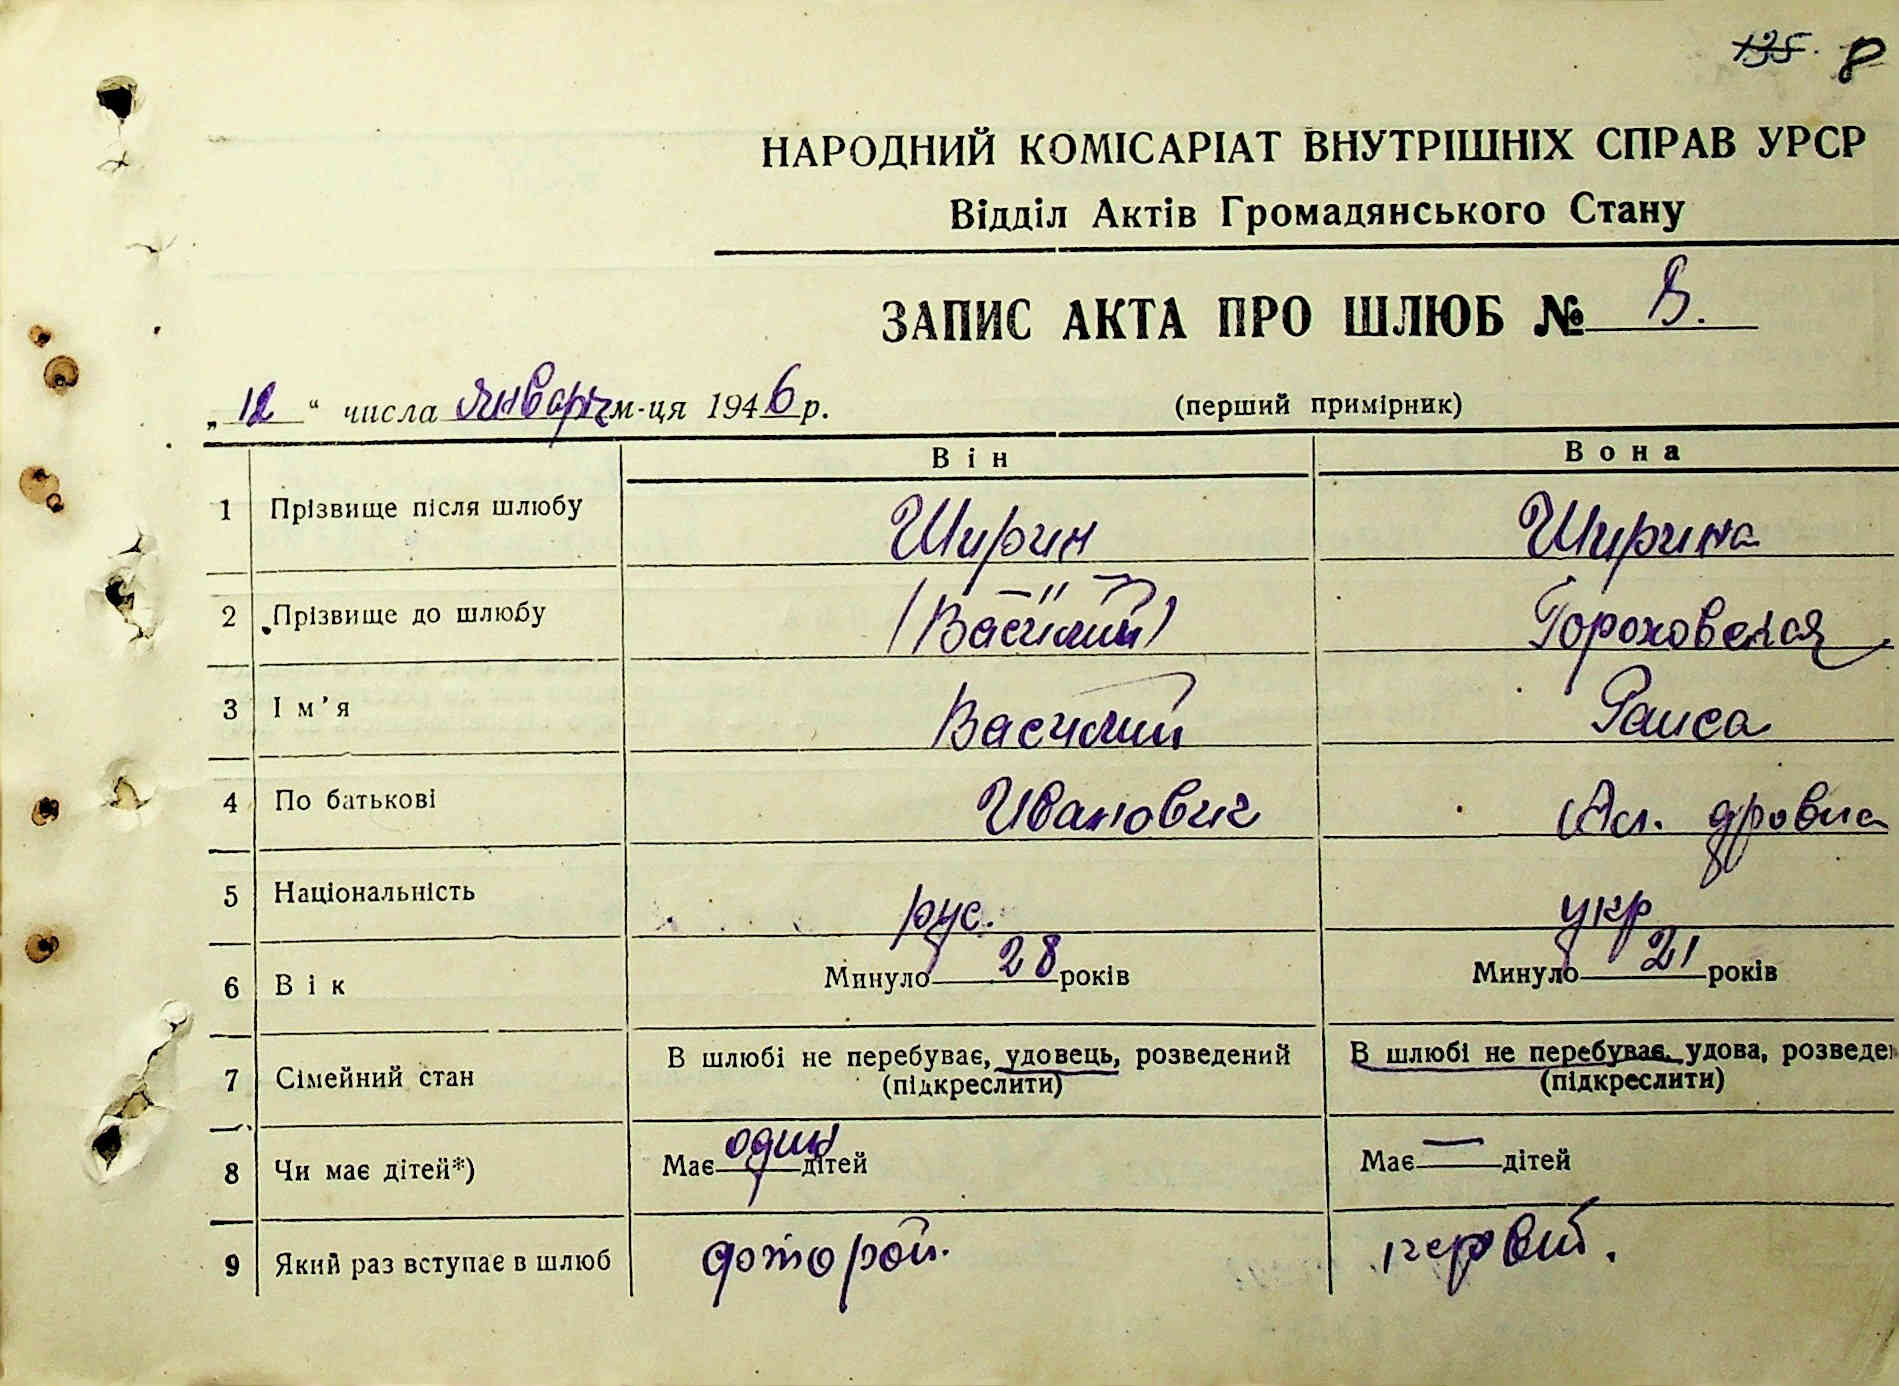 135. 8
НАРОДНИЙ КОМІСАРІАТ ВНУТРІШНІХ СПРАВ УРСР
Відділ Актів Громадянського Стану
ЗАПИС АКТА ПРО ШЛЮБ № 8.
„ 12 “ числа января м-ця 1946 р. (перший примірник)
Він Вона
1 Прізвище після шлюбу Ширин Ширина
2 Прізвище до шлюбу —"— (Василий) Гороховская
3 Ім'я Василий Раиса
4 По батькові Иванович Ал. дровна
5 Національність рус. укр
6 Вік Минуло 28 років Минуло 21 років
7 Сімейний стан В шлюбі не перебуває, удовець, розведений (підкреслити) В шлюбі не перебуває, удова, розведе (підкреслити)
8 Чи має дітей*) Має один дітей Має — дітей
9 Який раз вступає в шлюб фторой. первий.